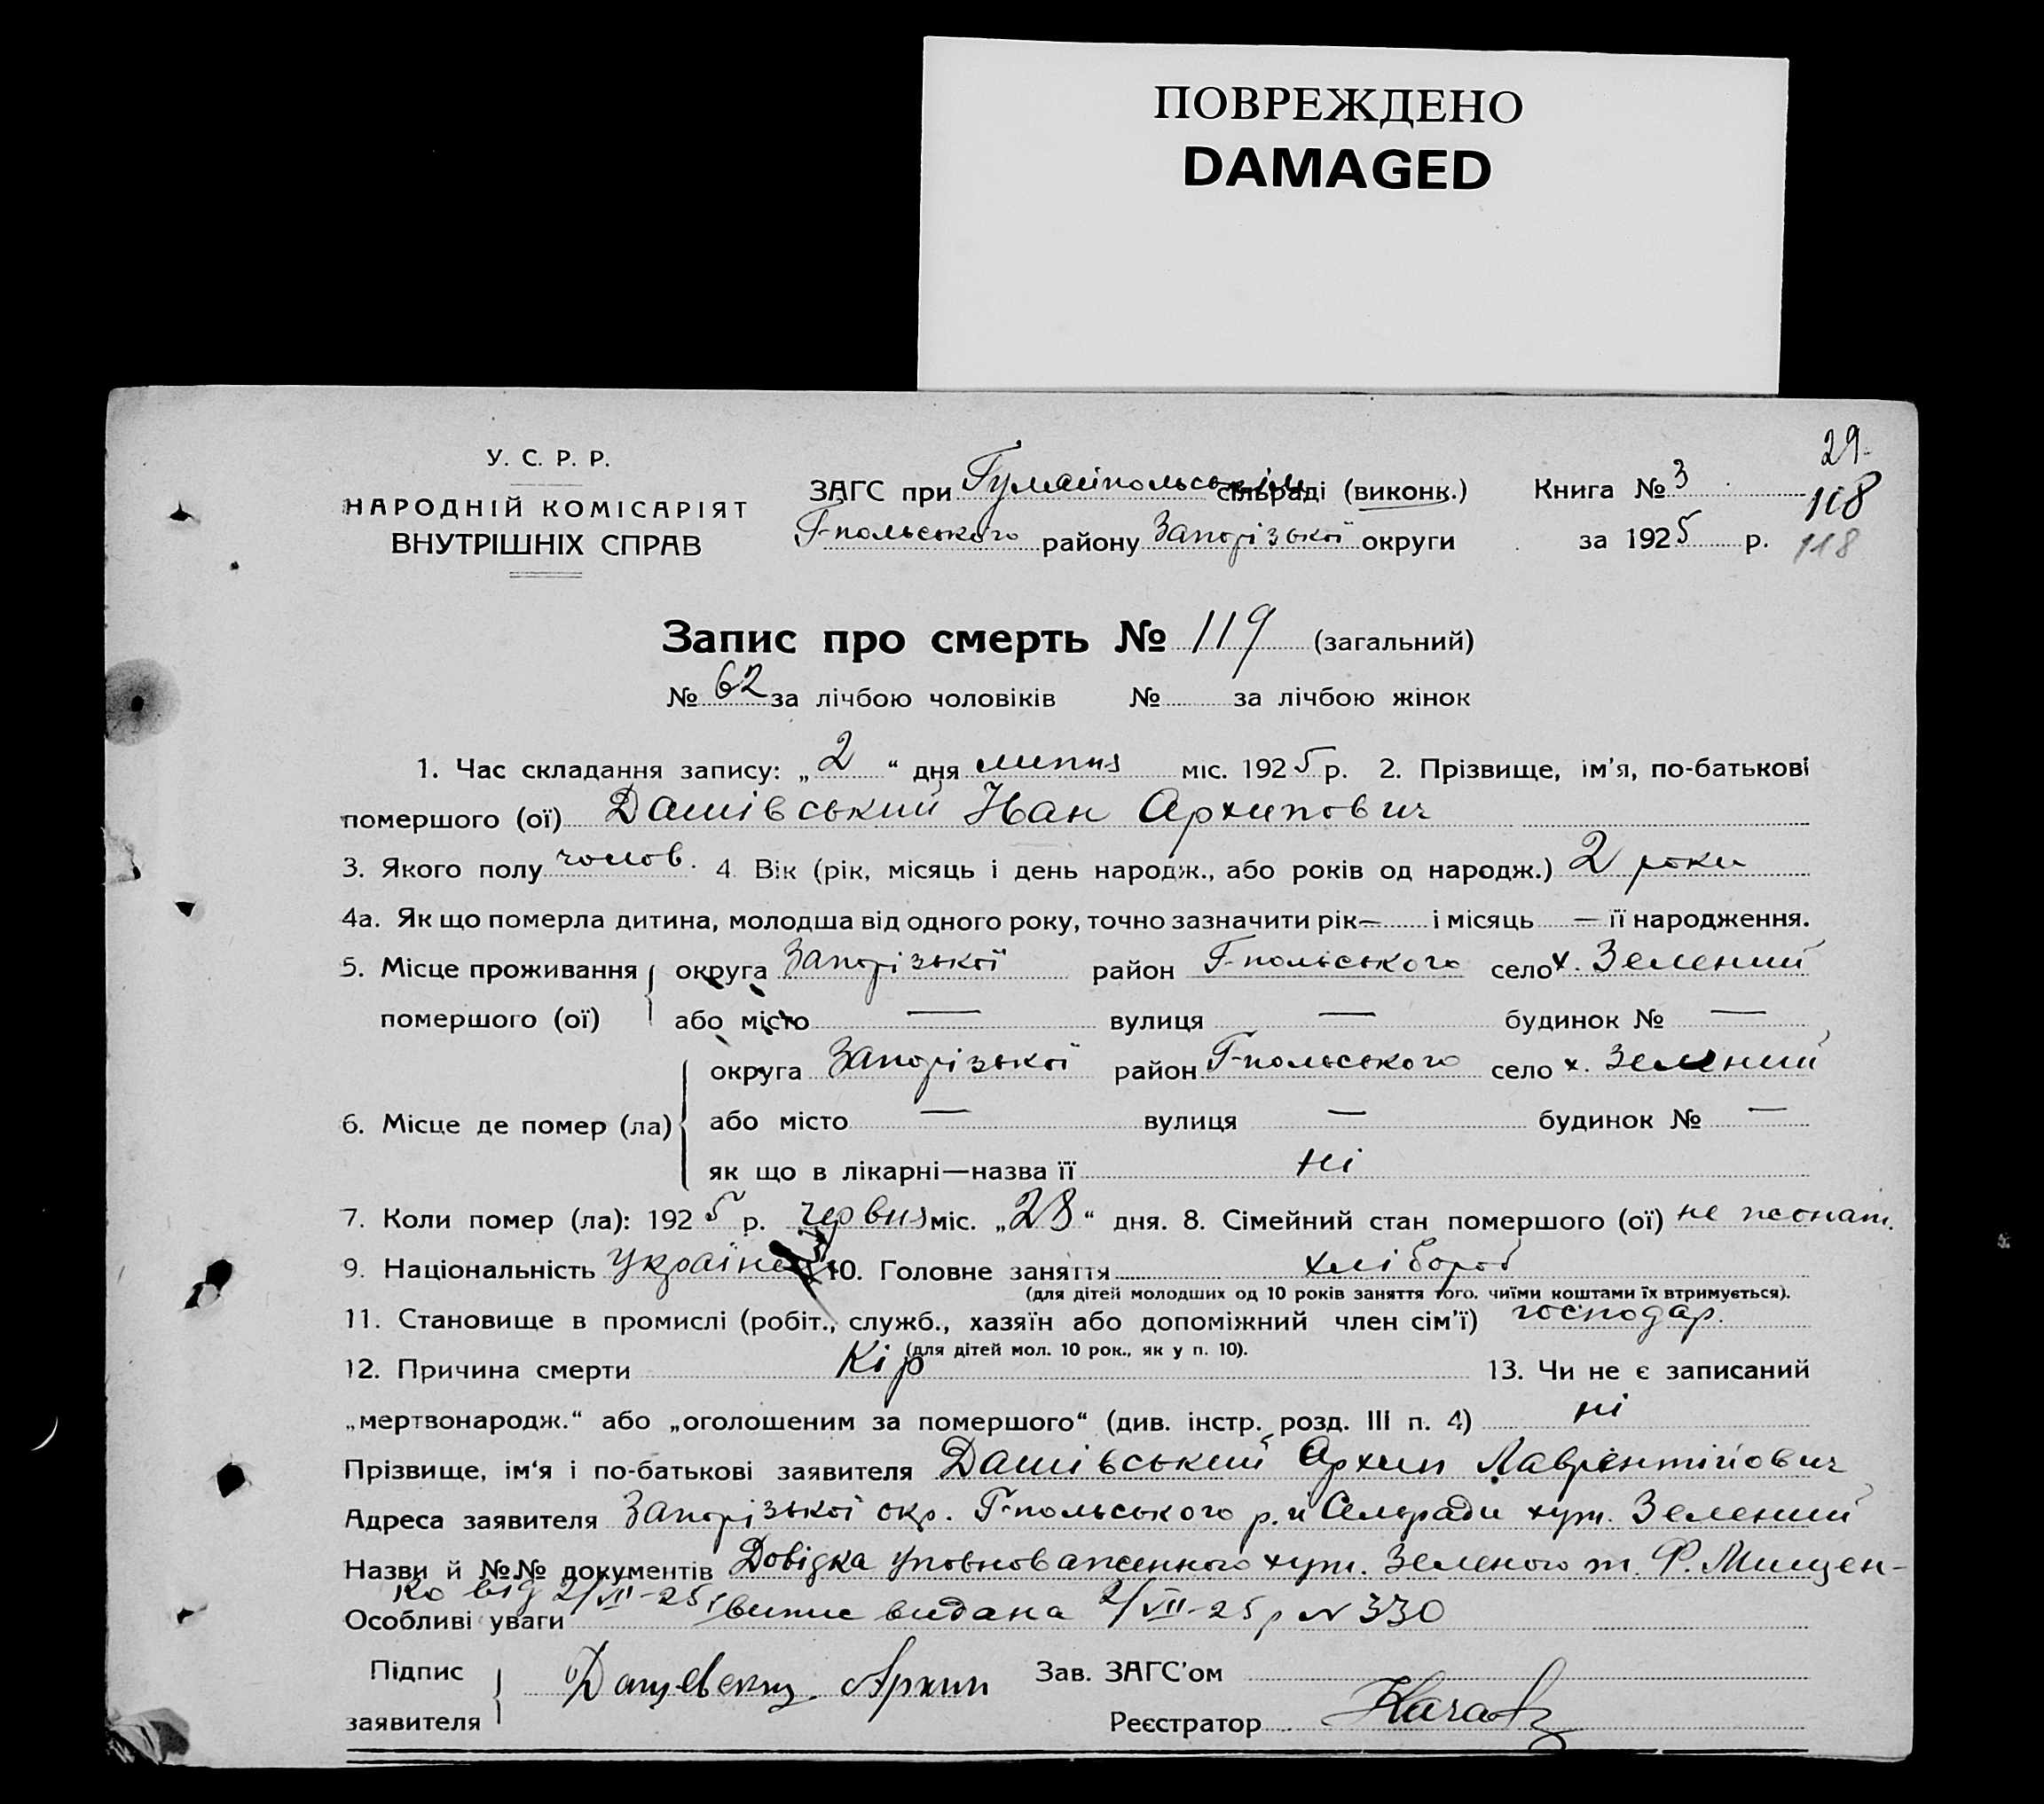 ПОВРЕЖДЕНО
DAMAGED
29
У. С. Р. Р.
НАРОДНІЙ КОМІСАРІЯТ
ВНУТРІШНІХ СПРАВ
ЗАГС при Гуляйпольськім сільраді (виконк.) Книга № 3 118
Г-польського району Запорізької округи за 1925 р. 118
Запис про смерть № 119 (загальний)
№ 62 за лічбою чоловіків № за лічбою жінок
1. Час складання запису: „2“ дня липня міс. 1925 р. 2. Прізвище, ім'я, по-батькові
помершого (ої) Дашівський Іван Архипович
3. Якого полу чолов. 4. Вік (рік, місяць і день народж., або років од народж.) 2 роки
4а. Як що померла дитина, молодша від одного року, точно зазначити рік — і місяць — її народження.
5. Місце проживання округа Запорізької район Г-польського село х. Зелений
помершого (ої) або місто — вулиця — будинок № —
округа Запорізької район Г-польського село х. Зелений
6. Місце де помер (ла) або місто — вулиця — будинок № —
як що в лікарні—назва її ні
7. Коли помер (ла): 1925 р. червня міс. „28“ дня. 8. Сімейний стан помершого (ої) не жонат.
9. Національність 10. Головне заняття хлібороб
(для дітей молодших од 10 років заняття того, чиїми коштами їх втримується).
11. Становище в промислі (робіт., служб., хазяїн або допоміжний член сім'ї) господар.
(для дітей мол. 10 рок., як у п. 10).
12. Причина смерти Кір 13. Чи не є записаний
„мертвонародж.“ або „оголошеним за помершого“ (див. інстр. розд. III п. 4) ні
Прізвище, ім'я і по-батькові заявителя Дашівський Архип Лаврентійович
Адреса заявителя Запорізької окр. Г-польського р. й Сельради хут. Зелений
Назви й №№ документів Довідка уповноваженного хут. Зеленого т. Ф. Мищен-
ко від 2/VII-25 р
Особливі уваги випис видана 2/VII-25 р № 330
Підпис
заявителя Архип Зав. ЗАГС'ом
Реєстратор